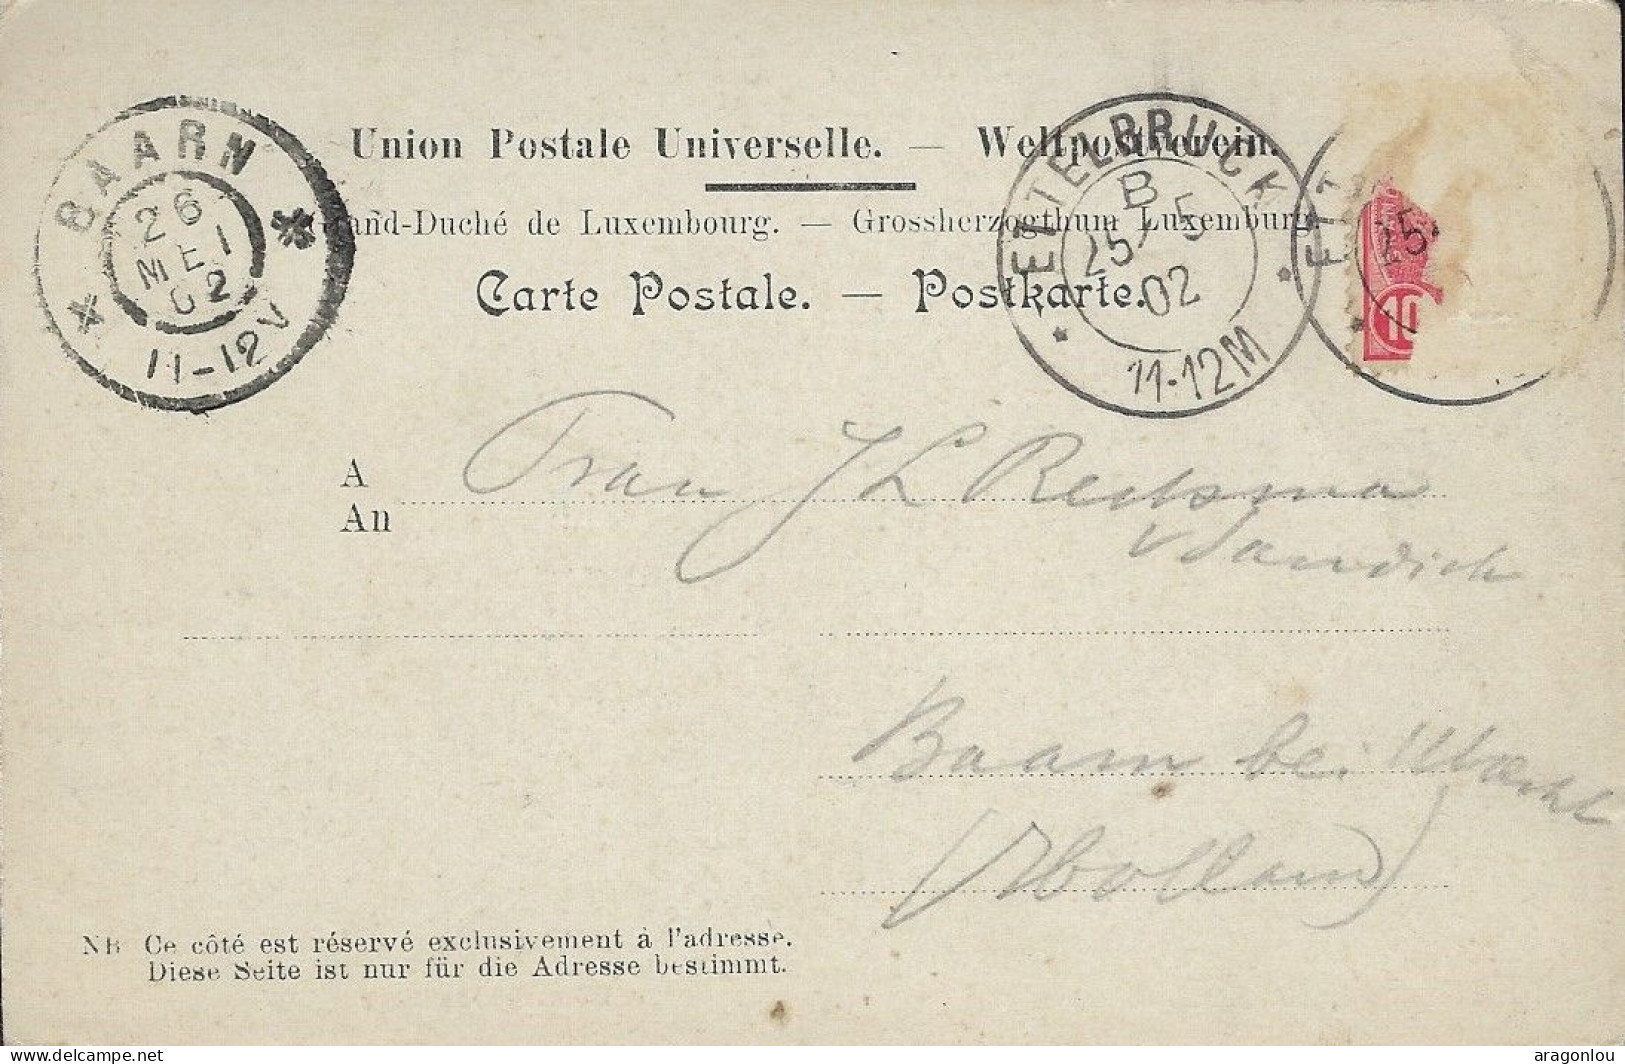 Union Postale Universelle. — Weltpostverein.
Grand-Duché de Luxembourg. — Grossherzogthum Luxemburg.
Carte Postale. — Postkarte.
BAARN
26
MEI
02
11-12V
ETTELBRUCK
B
25/5
02
11-12M
ETT
25
10
A
An
Frau J L
Baarn bei
(Holland)
NB Ce côté est réservé exclusivement à l'adresse.
Diese Seite ist nur für die Adresse bestimmt.
https://www.delcampe.net
aragonlou